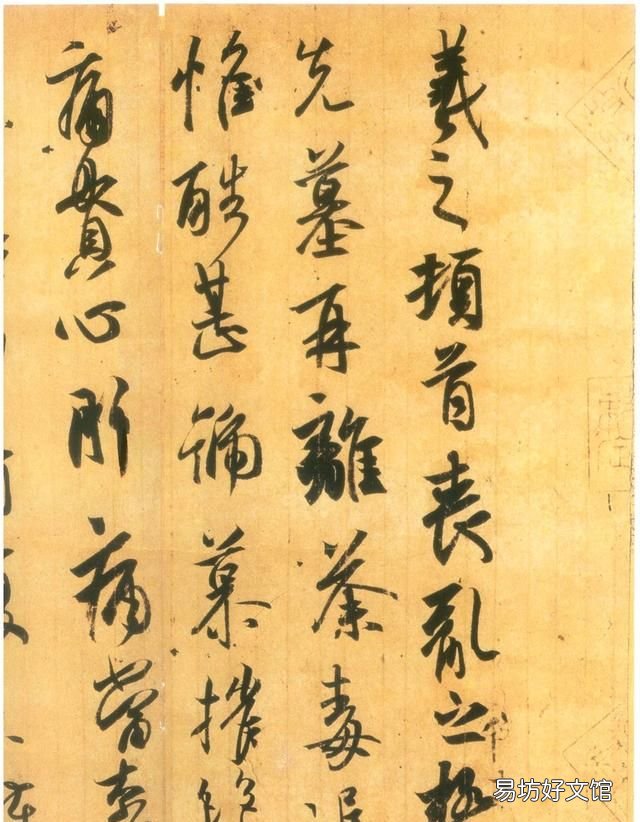 羲之頓首喪亂之極
先墓再離荼毒追
惟酷甚號慕摧絶
痛貫心肝痛當奈
易坊好文馆